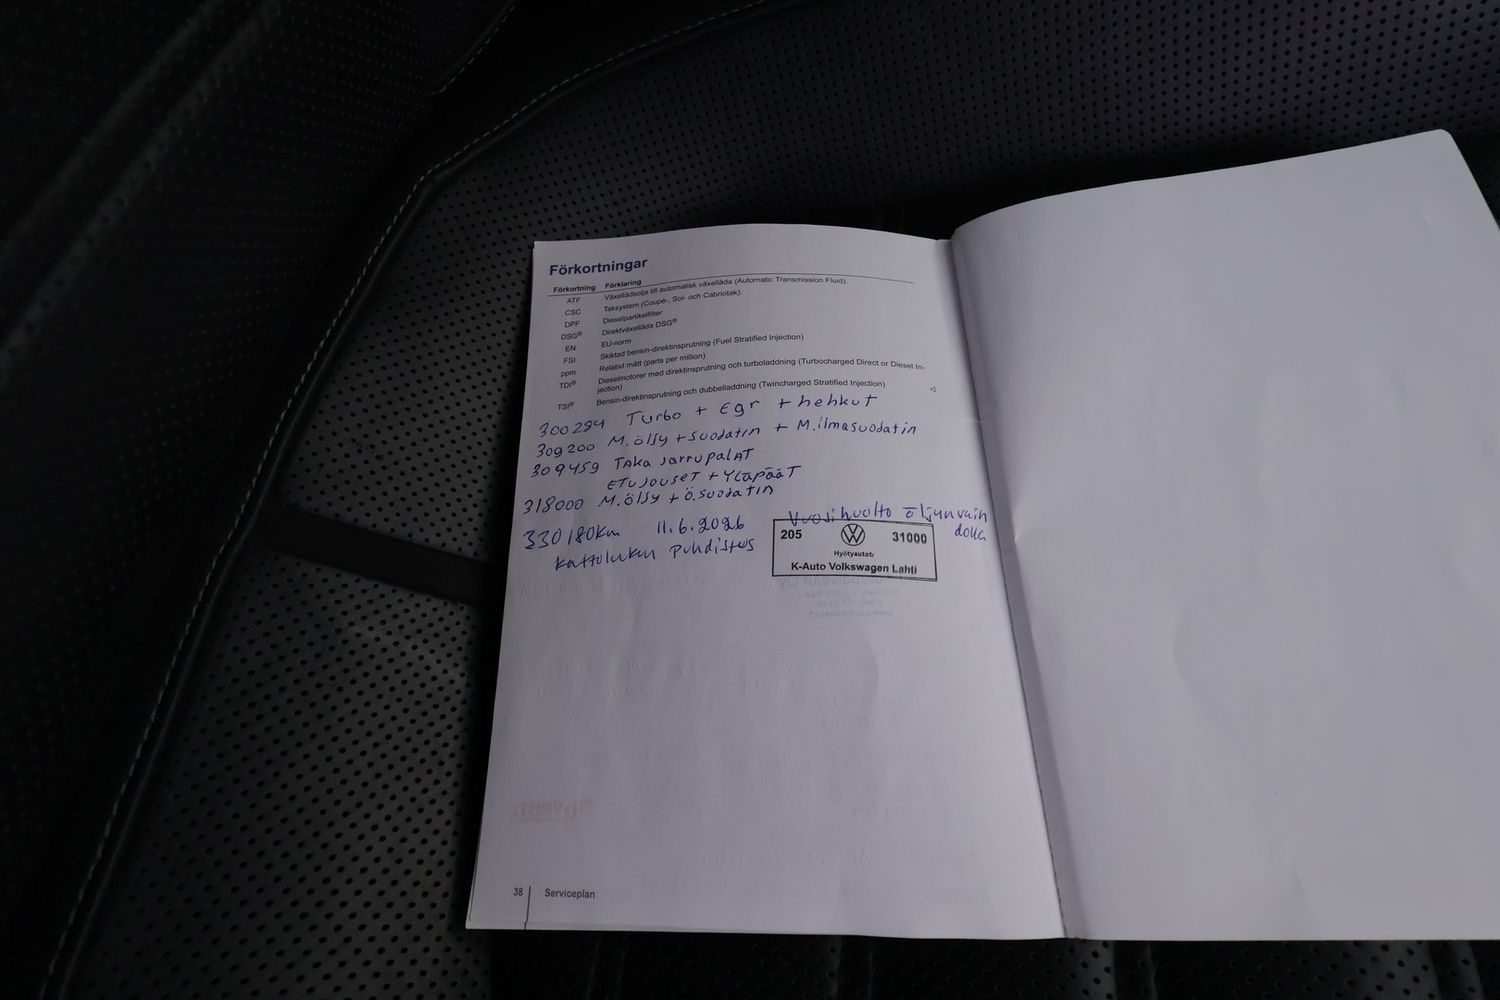 Förkortningar
Förkortning Förklaring
ATF Växellådsolja till automatisk växellåda (Automatic Transmission Fluid).
CSC Taksystem (Coupé-, Sol- och Cabriotak).
DPF Dieselpartikelfilter
DSG® Direktväxellåda DSG®
EN EU-norm
FSI Skiktad bensin-direktinsprutning (Fuel Stratified Injection)
ppm Relativt mått (parts per million)
TDI® Dieselmotorer med direktinsprutning och turboladdning (Turbocharged Direct or Diesel In-
jection)
TSI® Bensin-direktinsprutning och dubbelladdning (Twincharged Stratified Injection)
300294 Turbo + Egr + hehkut
309200 M.öljy + suodatin + M.ilmasuodatin
309459 TAKA jarrupalAT
ETUJOUSET + YLäpääT
318000 M.öljy + ö.suodatin
330180km 11.6.2026 Vuosihuolto öljynvaih
dolla
kattoluukun puhdistus
205 31000
Hyötyautot
K-Auto Volkswagen Lahti
38 Serviceplan